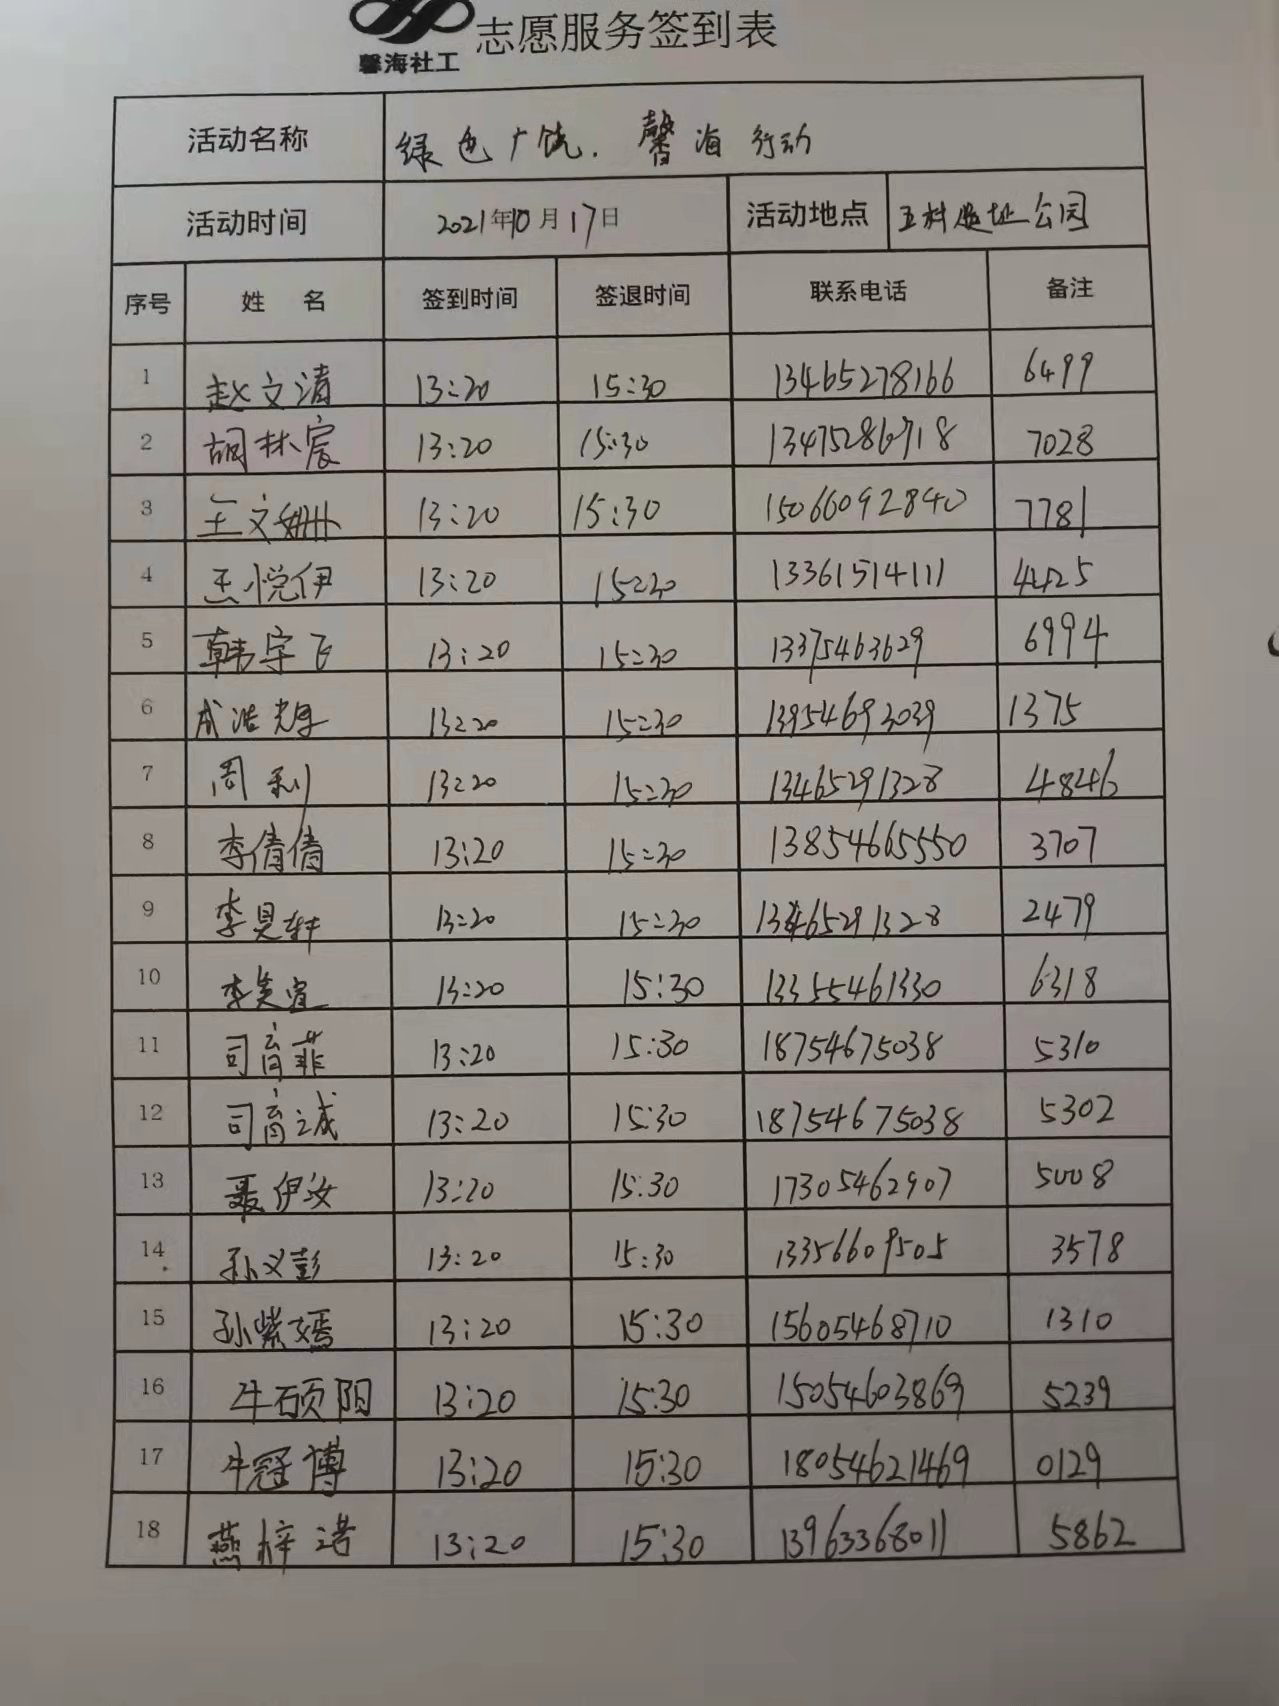 志愿服务签到表
馨海社工
活动名称 绿色广饶.馨海行动
活动时间 2021年10月17日 活动地点 五村遗址公园
序号 姓名 签到时间 签退时间 联系电话 备注
1 赵文清 13:20 15:30 13465278166 6499
2 胡林宸 13:20 15:30 13475286718 7028
3 王文姗 13:20 15:30 15066092840 7781
4 王悦伊 13:20 15:30 13361514111 4425
5 韩宇飞 13:20 15:30 13375463629 6994
6 成浩 13:20 15:30 13954693039 1375
7 周利 13:20 15:30 13465291328 4846
8 李倩倩 13:20 15:30 13854665550 3707
9 李昊轩 13:20 15:30 13465291328 2479
10 李美宣 13:20 15:30 13355461330 6318
11 司育菲 13:20 15:30 18754675038 5310
12 司育诚 13:20 15:30 18754675038 5302
13 聂伊汝 13:20 15:30 17305462907 5008
14 孙义彭 13:20 15:30 13356609505 3578
15 孙紫嫣 13:20 15:30 15605468710 1310
16 牛硕阳 13:20 15:30 15054603869 5239
17 牛冠博 13:20 15:30 18054621469 0129
18 燕梓诺 13:20 15:30 13963368011 5862